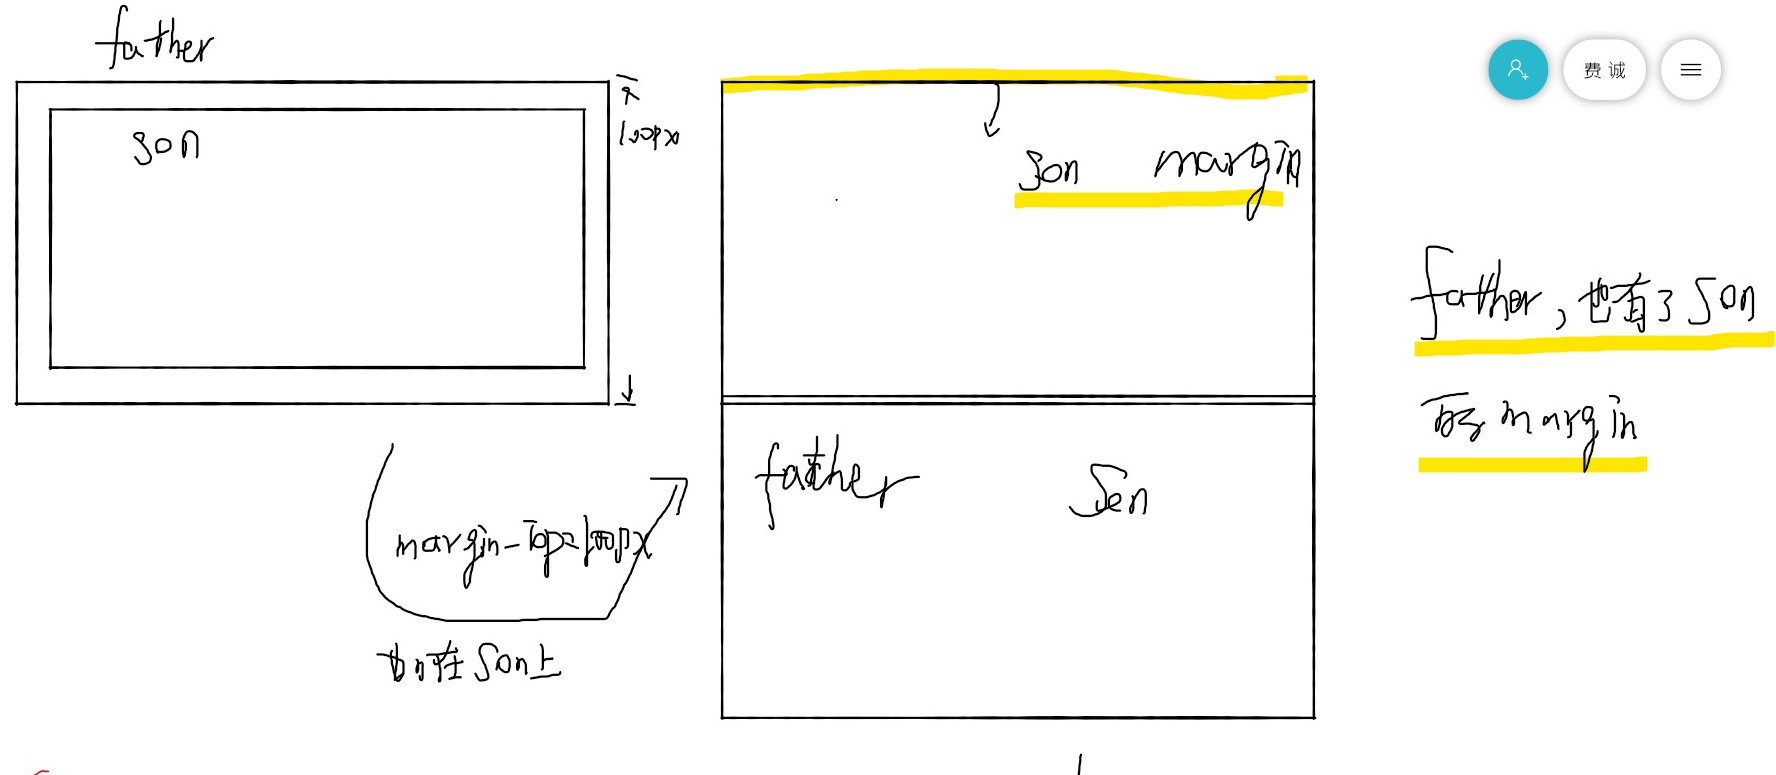 father
son
100px
margin-Top=100px
加在Son上
son margin
father Son
father,也有了Son
的margin
费诚